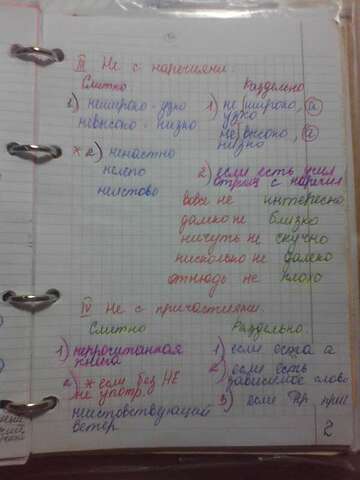 III Не с наречиями.
Слитно Раздельно
1) неширок - узко 1) не широко, а
узко
невысоко - низко не высоко, а
низко
* 2) ненастно 2) если есть усил
нелепо отриц с наречия
неистово вовсе не интересно
далеко не близко
ничуть не скучно
нисколько не далеко
отнюдь не плохо
IV Не с причастиями.
Слитно Раздельно.
1) непрочитанная 1) если есть а
книга 2) если есть
2) * если без НЕ зависимое слово
не употр. 3) если кр при
неистовствующий
ветер 2